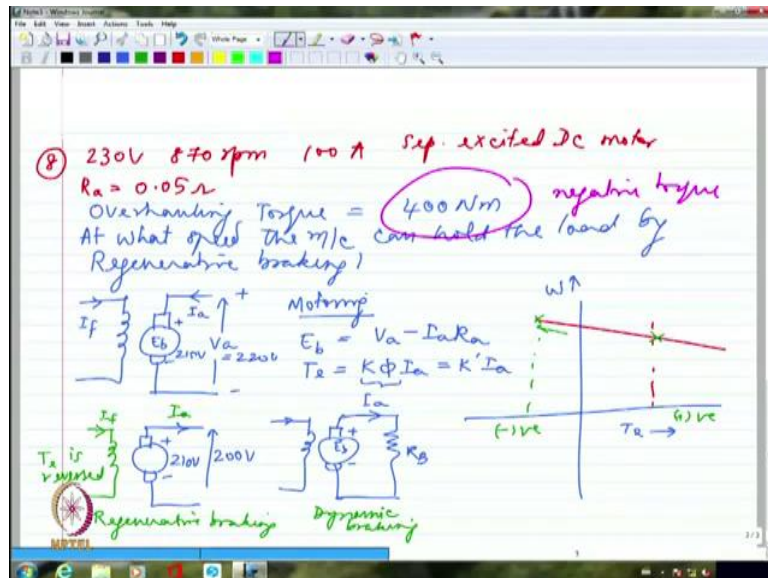 Note3 - Windows Journal
File Edit View Insert Actions Tools Help
Whole Page
8 230V 870 rpm 100 A Sep. excited DC motor
Ra = 0.05 Ω
Overhauling Torque = 400 Nm negative torque
At what speed the m/c can hold the load by
Regenerative braking)
If Ia + Eb 210V - Va = 220V -
Motoring
Eb = Va - IaRa
Te = KΦ Ia = K' Ia
ω ↑
(-) ve Te → (+) ve
Te is reversed
If Ia + 210V - 200V
Ia + Eb - RB
Regenerative braking
Dynamic braking
NPTEL